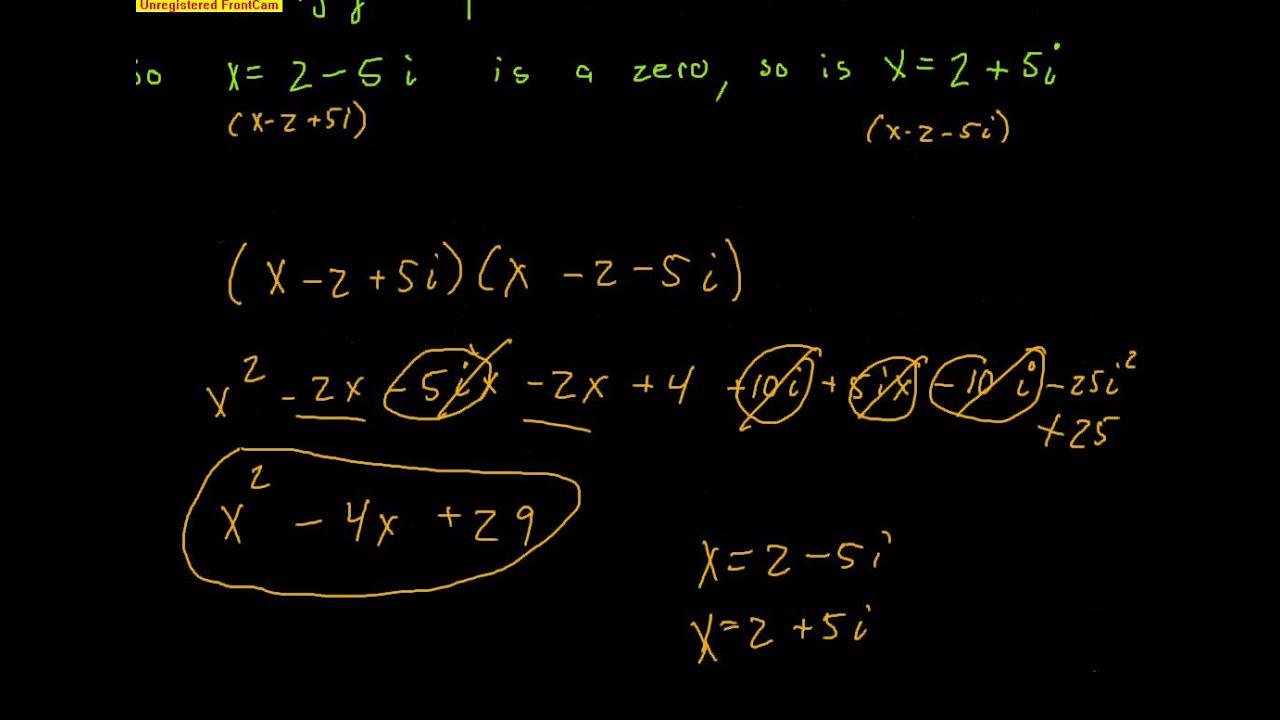 Unregistered FrontCam
so x = 2 - 5i is a zero, so is x = 2 + 5i
(x - 2 + 5i) (x - 2 - 5i)
(x - 2 + 5i)(x - 2 - 5i)
x² - 2x - 5ix - 2x + 4 + 10i + 5ix - 10i - 25i²
+ 25
x² - 4x + 29
x = 2 - 5i
x = 2 + 5i